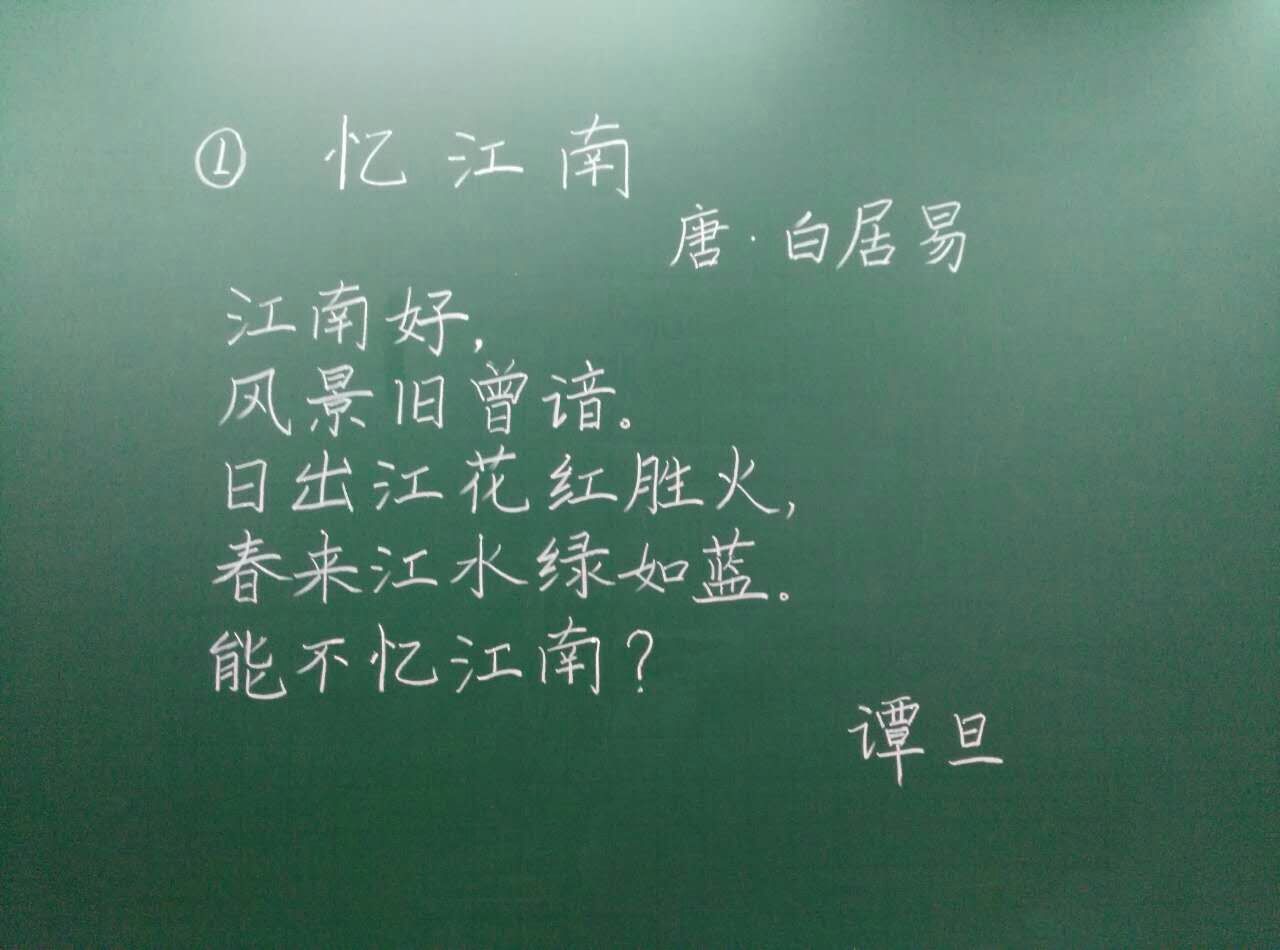 ① 忆江南
唐·白居易
江南好,
风景旧曾谙。
日出江花红胜火,
春来江水绿如蓝。
能不忆江南?
谭旦